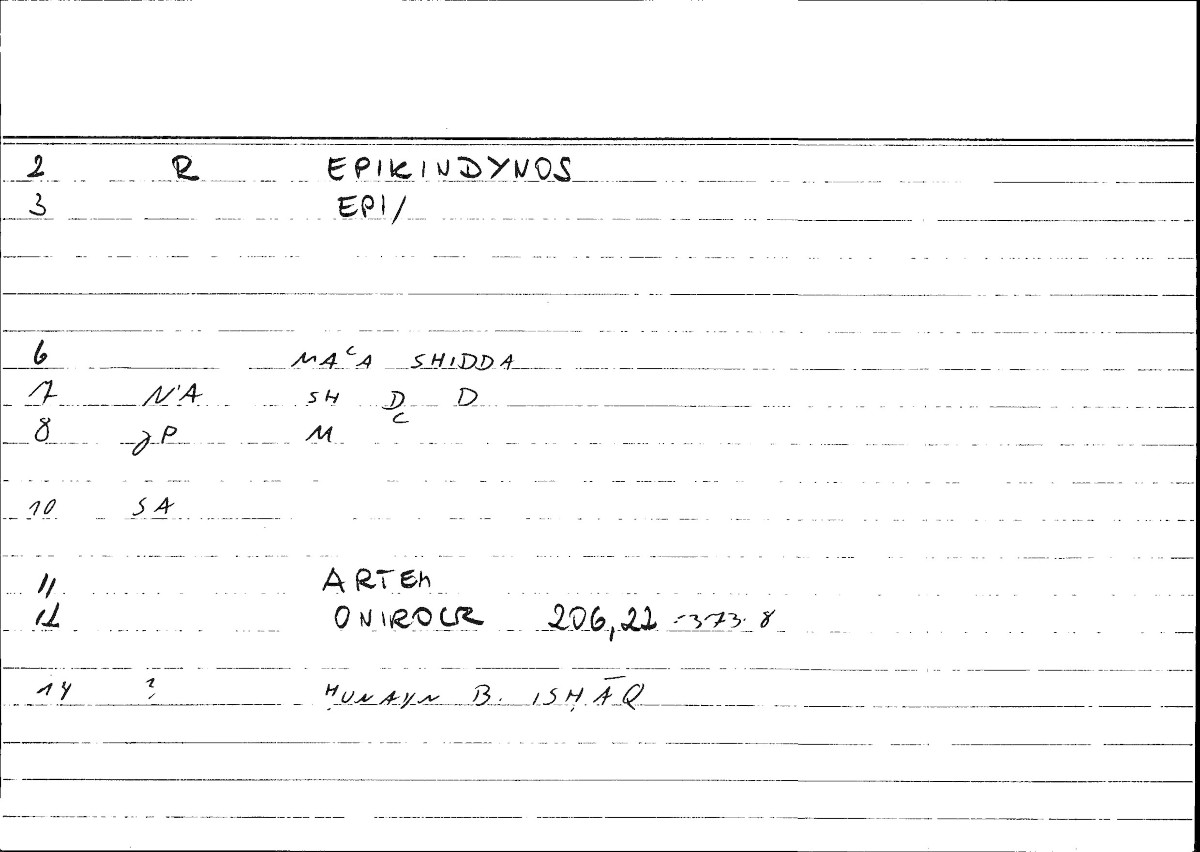 2 R EPIKINDYNOS
3 EPI/
6 MAᶜA SHIDDA
7 N'A SH D D
8 gP M ᶜ
10 SA
11 ARTEM
12 ONIROCR 206,22 -373.8
14 ? ḤUNAYN B. ISḤĀQ